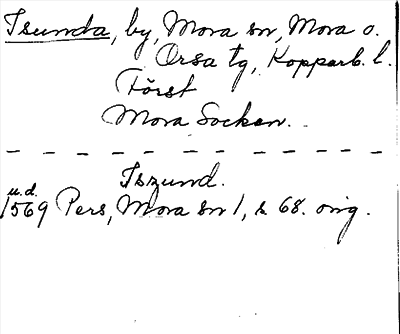 Isunda, by, Mora sn, Mora o.
Orsa tg, Kopparb. l.
Först
Mora Socken.
Iszund.
u.d.
1569 Pers, Mora sn 1, s 68. orig.